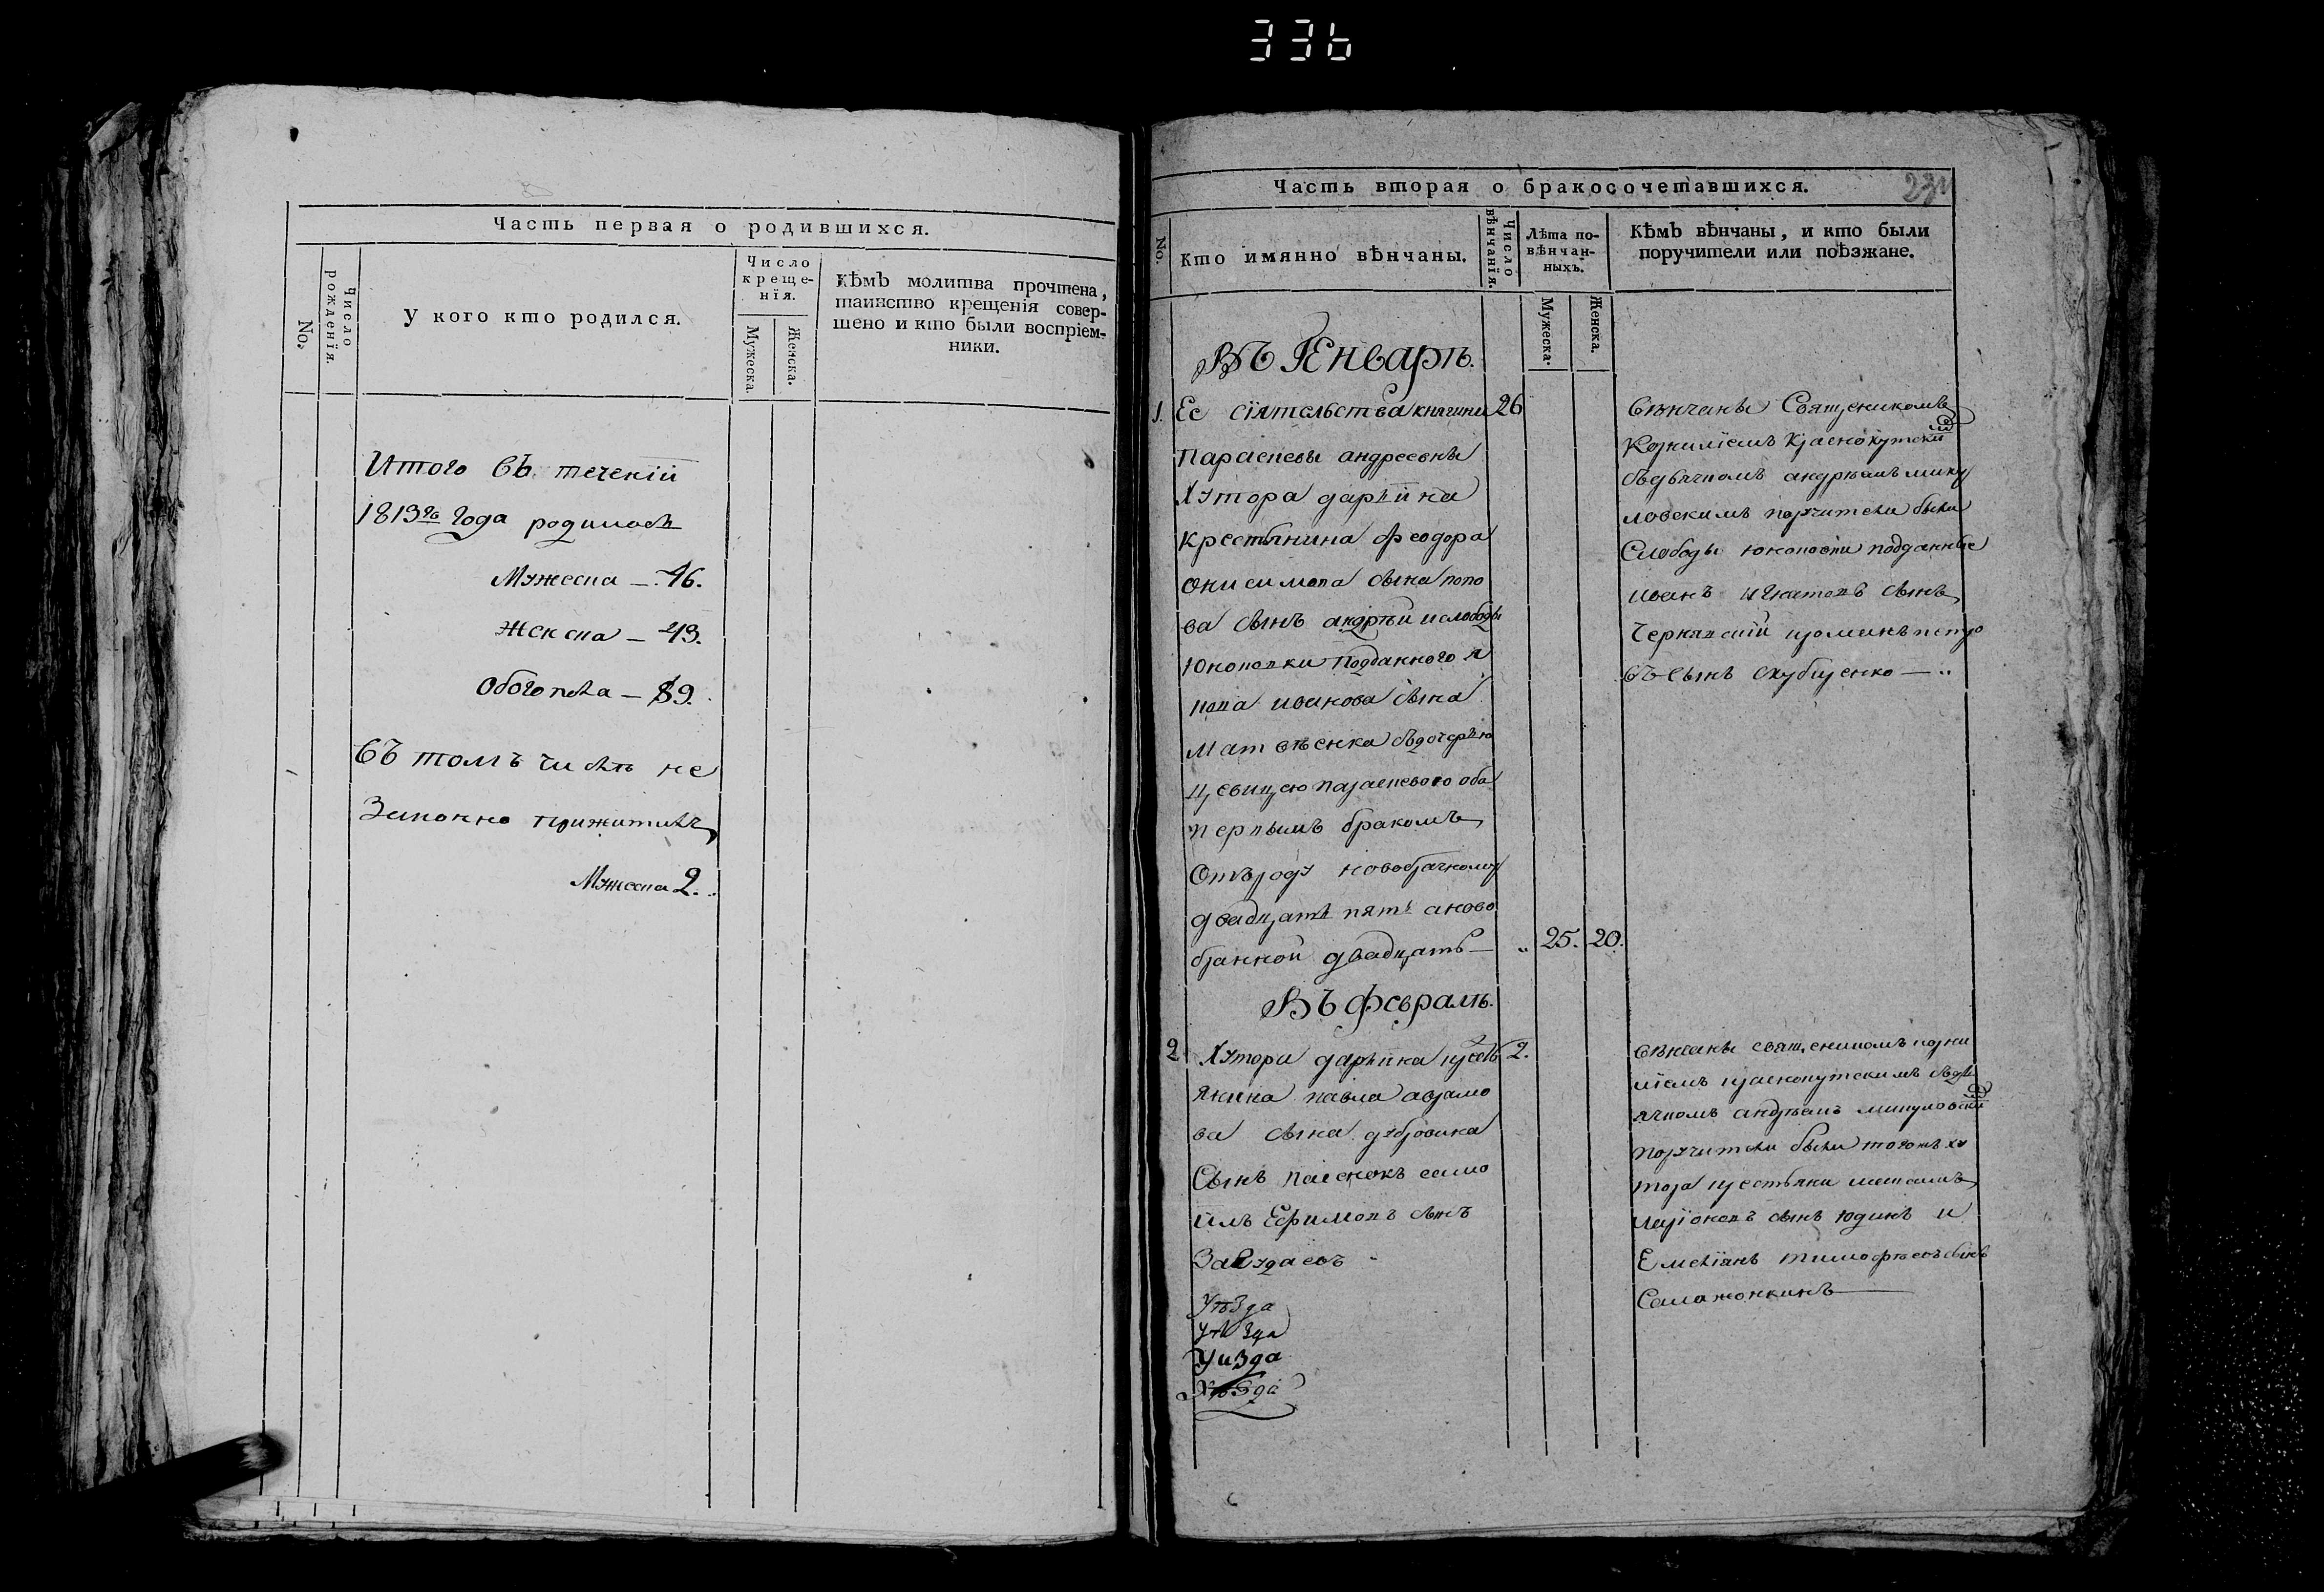 336
Часть первая о родившихся.
No.
Число рожденія.
У кого кто родился.
Число
креще-
нія.
Мужеска.
Женска.
Кѣмъ молитва прочтена,
таинство крещенія совер-
шено и кто были воспріем-
ники.
Итого въ теченіи
1813го года родилось
Мужеска — 46.
Женска — 43.
Обоего пола — 89.
Въ томъ числѣ не
Законно прижитыхъ
Мужеска 2.
Часть вторая о бракосочетавшихся.
No.
Кто имянно вѣнчаны.
Число вѣнчанія.
Лѣта по-
вѣнчан-
ныхъ.
Мужеска.
Женска.
Кѣмъ вѣнчаны, и кто были
поручители или поѣзжане.
Въ Генварѣ.
1. Ее сіятельства княгини 26
Параскевы андреевны
Хутора дарьина
крестьянина феодора
онисимова сына попо
ва сынъ андрѣй и слободы
Юнаковки подданного
иванова сына
Матвѣенка съ дочерью
дѣвицею параскевою оба
первымъ бракомъ
Отъ роду новобрачному
двадцать пять а ново
бранной двадцать — „ 25. 20.
вѣнчаны Священикомъ
Корниліемъ Краснокутским
съ дьячкомъ андрѣемъ мику
ловскимъ поручители были
Слободы юнаковки подданные
иванъ игнатовъ сынъ
съ сынъ
Въ февралѣ.
2 Хутора дарьина крестья 2.
янина павла аврамо
ва сына дубровина
Сынъ самo
илъ Ефимовъ сынъ
вѣнчаны священикомъ корни
ліемъ краснокутскимъ съ дь
ячкомъ андрѣемъ микуловским
поручители были тогожъ ху
тора крестьяни
сынъ юдинъ и
Емеліянъ тимофѣевъ сынъ
Саламонкинъ —
Уѣзда
Уѣзда
Уизда
Уѣзда